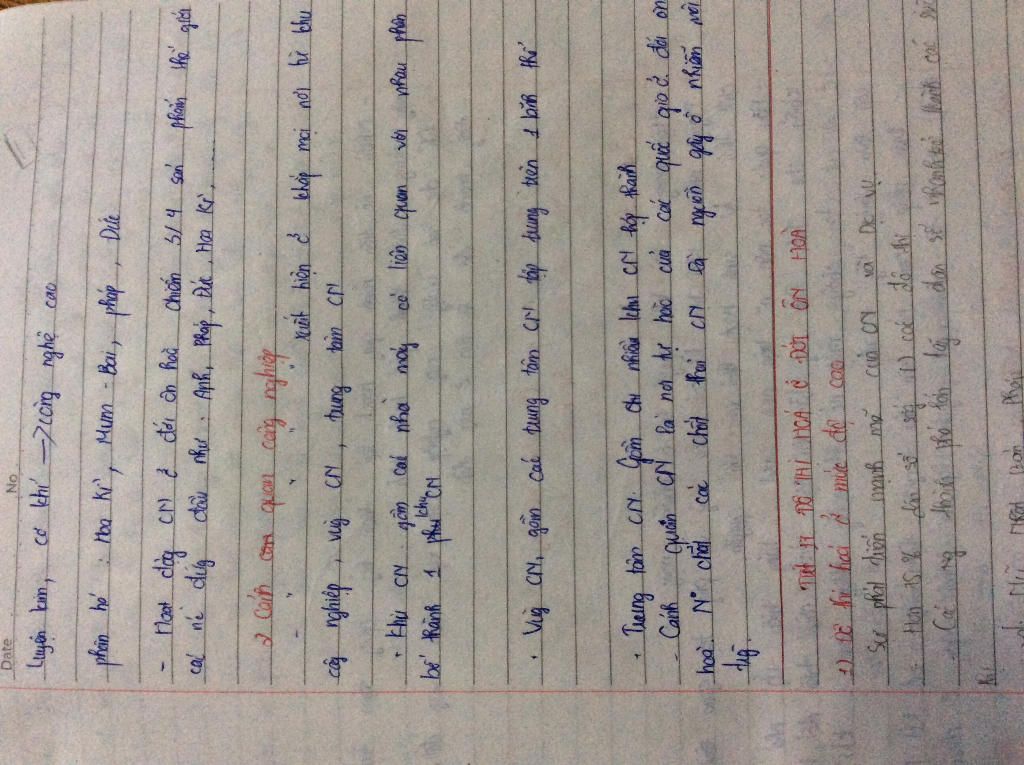 Date No
luyện kim, cơ khí → công nghệ cao
phân bố : Hoa Kì, , pháp, Đức
- Hoạt động CN ở đới ôn hoà chiếm 3/4 sản phẩm thế giới
các nc đứng đầu như : Anh, Pháp, Đức, Hoa Kì, ......
2 Cảnh quan công nghiệp
- " " " xuất hiện ở khắp mọi nơi từ khu
công nghiệp, vùg CN, trung tâm CN
+ Khu CN. gồm các nhà máy có liên quan với nhau phân
bố thành 1 khu CN
. Vùg CN, gồm các trung tâm CN tập trung trên 1 lãnh thổ
+ Trung tâm CN Gồm nhiều khu CN tạo thành
- Cảnh quan CN là nơi tự hào của các quốc gia ở đới ôn
hoà. N° chất các chất thải CN là nguồn gây ô nhiễm môi
Tiết 17 ĐÔ THỊ HOÁ Ở ĐỚI ÔN HOÀ
1) Đô thị hoá ở mức độ cao
Sự phát triển mạnh mẽ của CN và Dịc vụ
- Hơn 75 % dân số sống () các đô thị
- Các thành phố lớn dần sẽ thành các